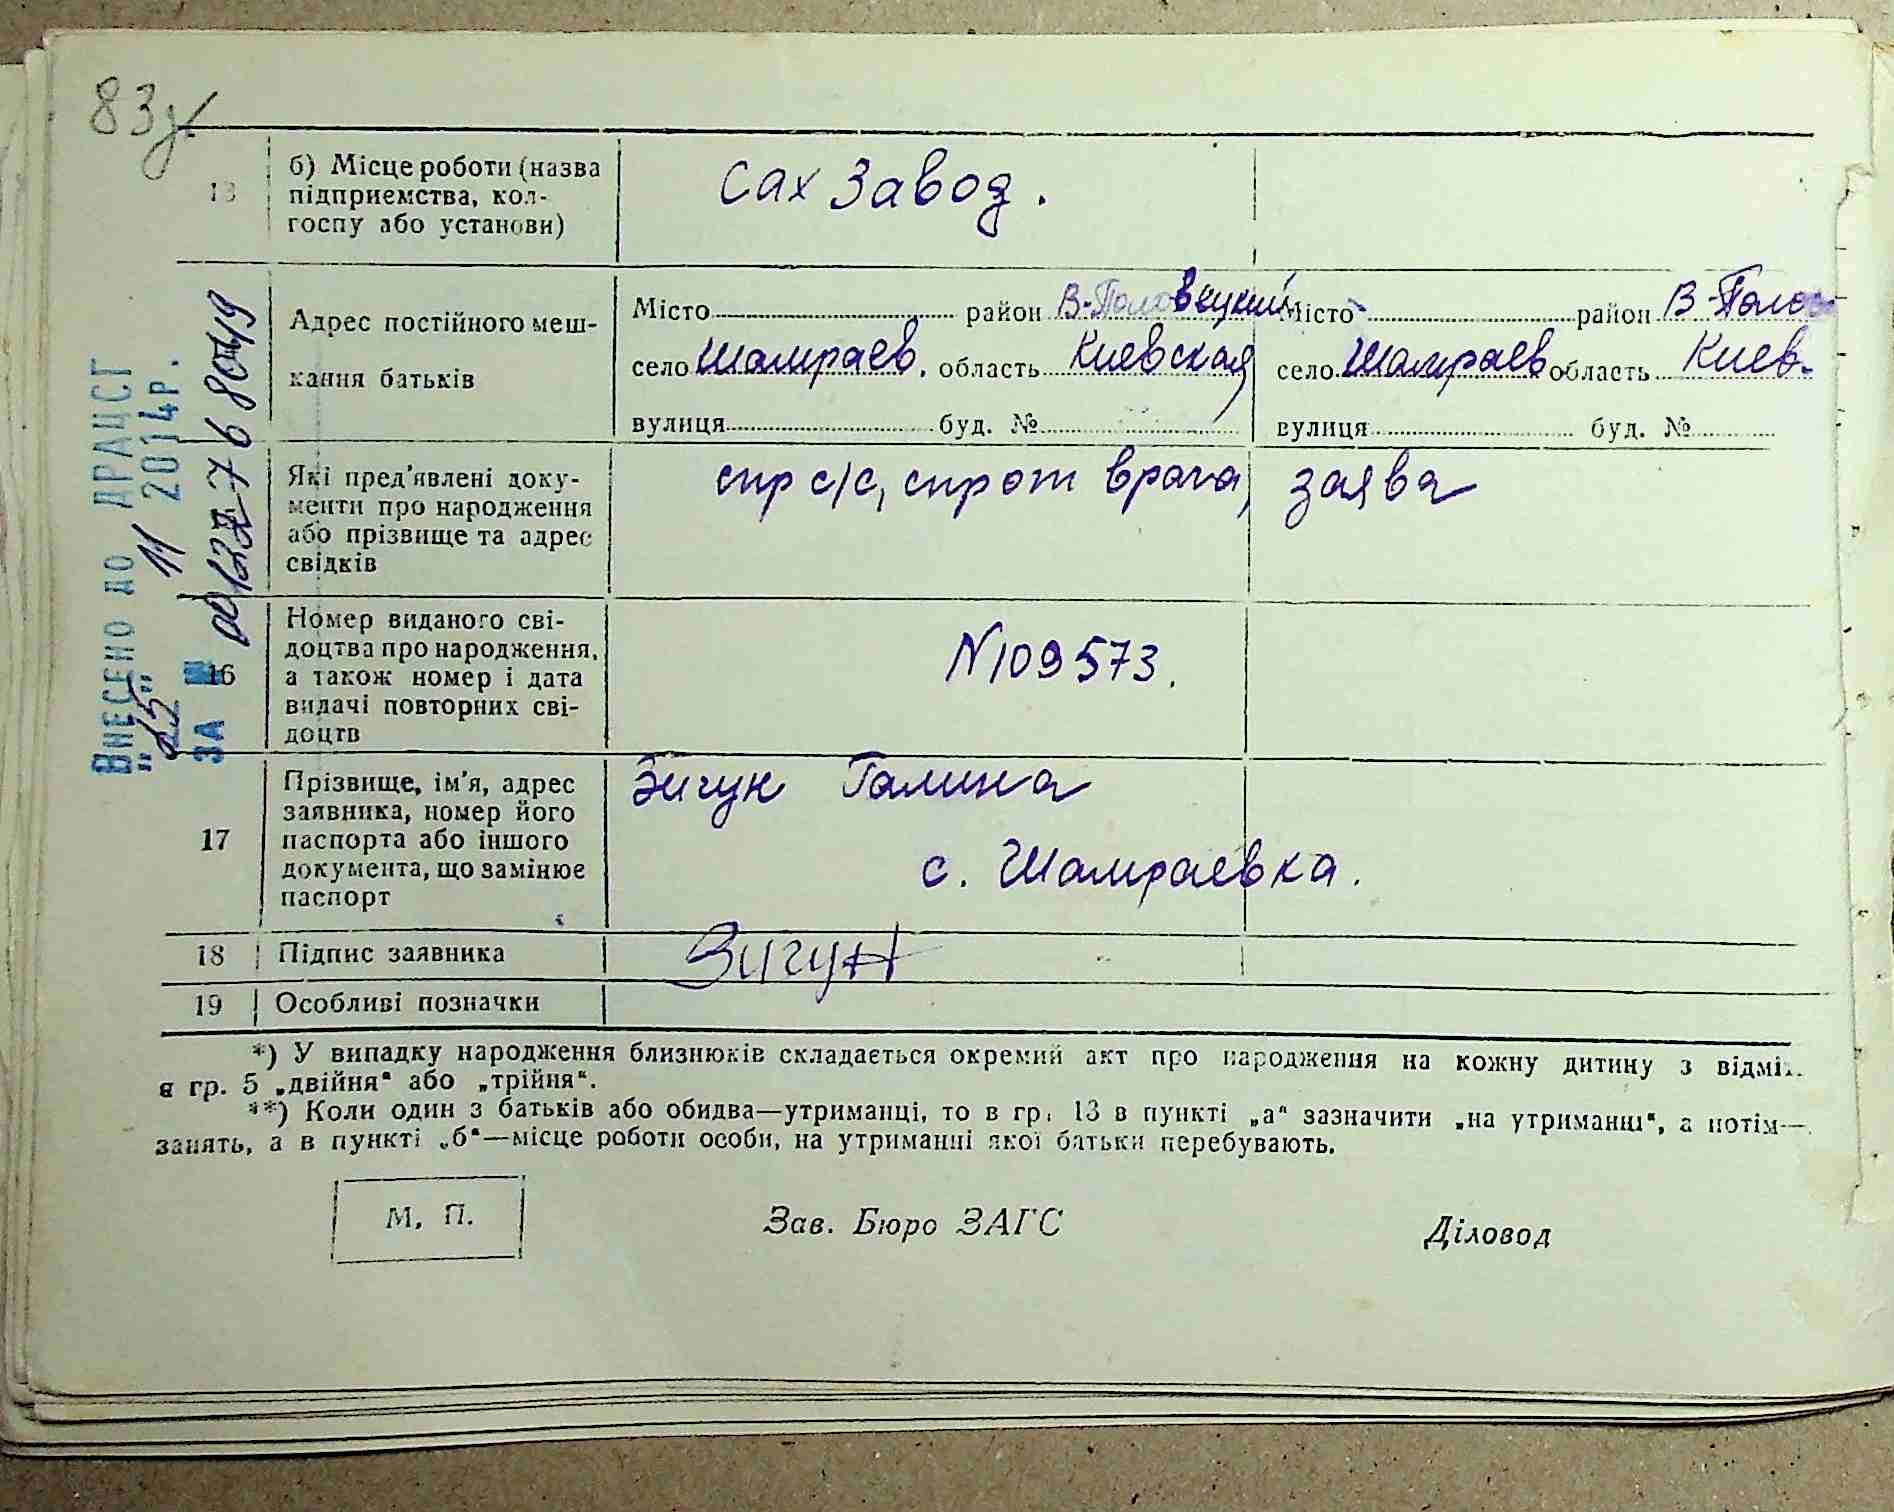 83
13
б) Місце роботи (назва
підприємства, кол-
госпу або установи)
Сах Завод.
Адрес постійного меш-
кання батьків
Місто район В-Половецкий
село Шамраев. область Киевская
вулиця буд. №
Місто район В-Поло
село Шамраев область Киев.
вулиця буд. №
Які пред'явлені доку-
менти про народження
або прізвище та адрес
свідків
спр с/с, спр от врача, заява
16
Номер виданого сві-
доцтва про народження,
а також номер і дата
видачі повторних сві-
доцтв
N109573.
17
Прізвище, ім'я, адрес
заявника, номер його
паспорта або іншого
документа, що замінює
паспорт
Зигун Галина
с. Шамраевка.
18 Підпис заявника Зигун
19 Особливі позначки
*) У випадку народження близнюків складається окремий акт про народження на кожну дитину з відміт.
в гр. 5 „двійня“ або „трійня“.
**) Коли один з батьків або обидва—утриманці, то в гр. 13 в пункті „а“ зазначити „на утриманні“, а потім—
занять, а в пункті „б“—місце роботи особи, на утриманні якої батьки перебувають.
М. П.
Зав. Бюро ЗАГС
Діловод
Внесено до ДРАЦСГ
"25" 11 2014р.
за № 00127768049